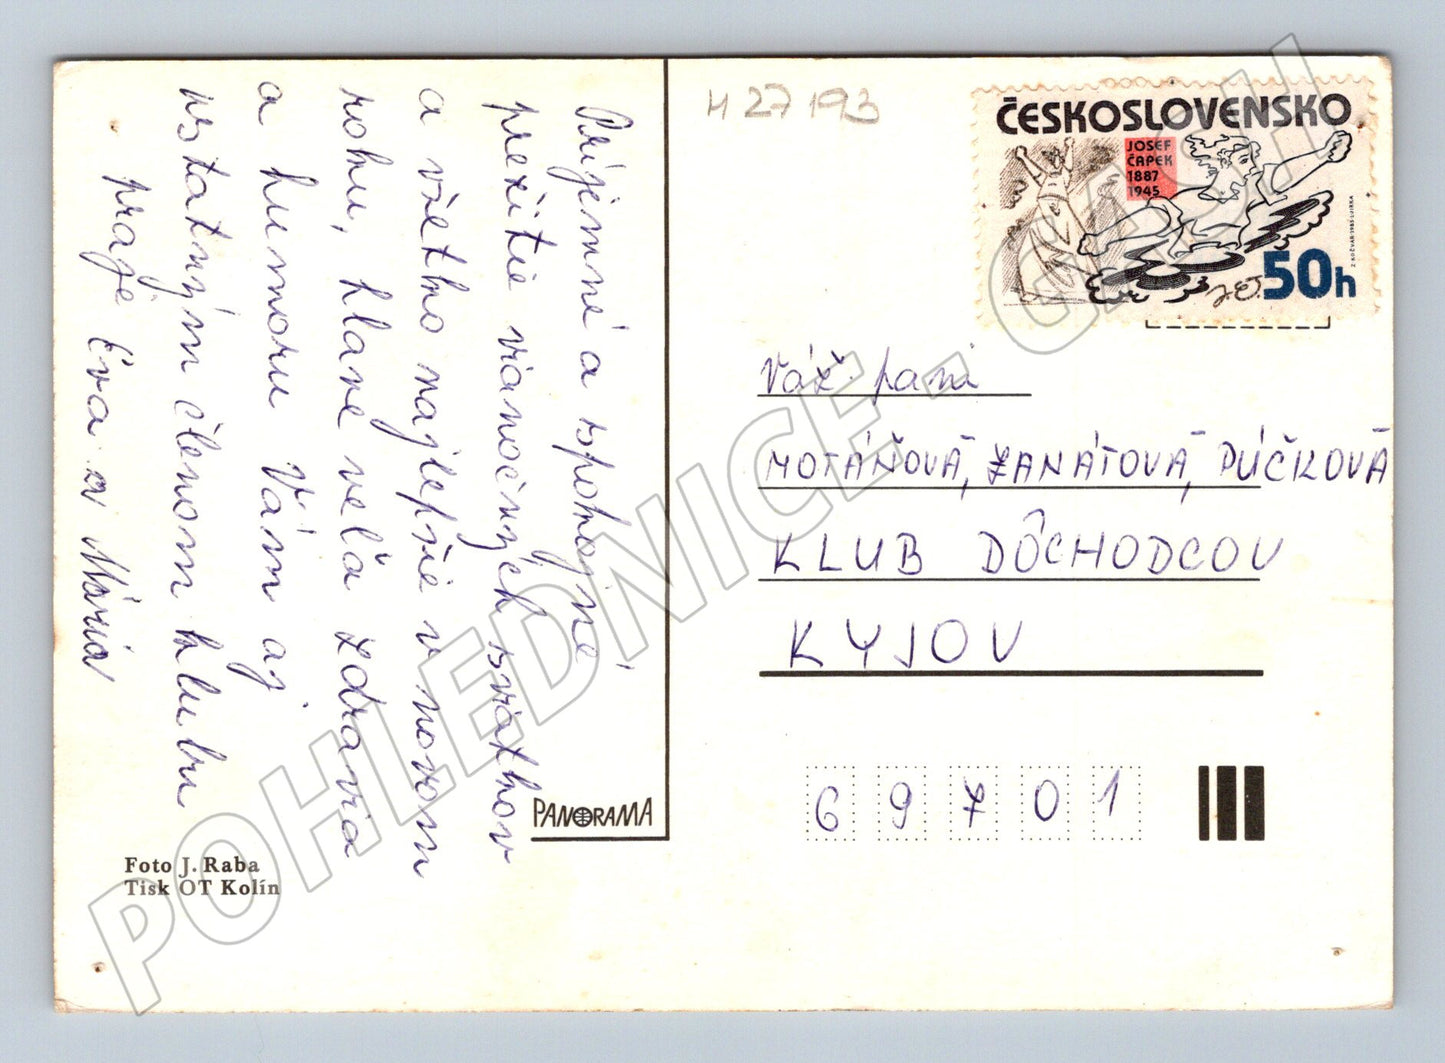 Príjemné a spokojné
prežitie vianočných sviatkov
a všetko najlepšie v novom
roku, hlavne veľa zdravia
a humoru Vám aj
ostatným členom klubu
praje Eva a Mária
Foto J. Raba
Tisk OT Kolín
PANORAMA
H 27 193
ČESKOSLOVENSKO
JOSEF
ČAPEK
1887
1945
50h
Váž. pani
MOTÁŇOVÁ, ZANÁTOVÁ, PÚČKOVÁ
KLUB DÔCHODCOV
KYJOV
69701
POHLEDNICE - CASH